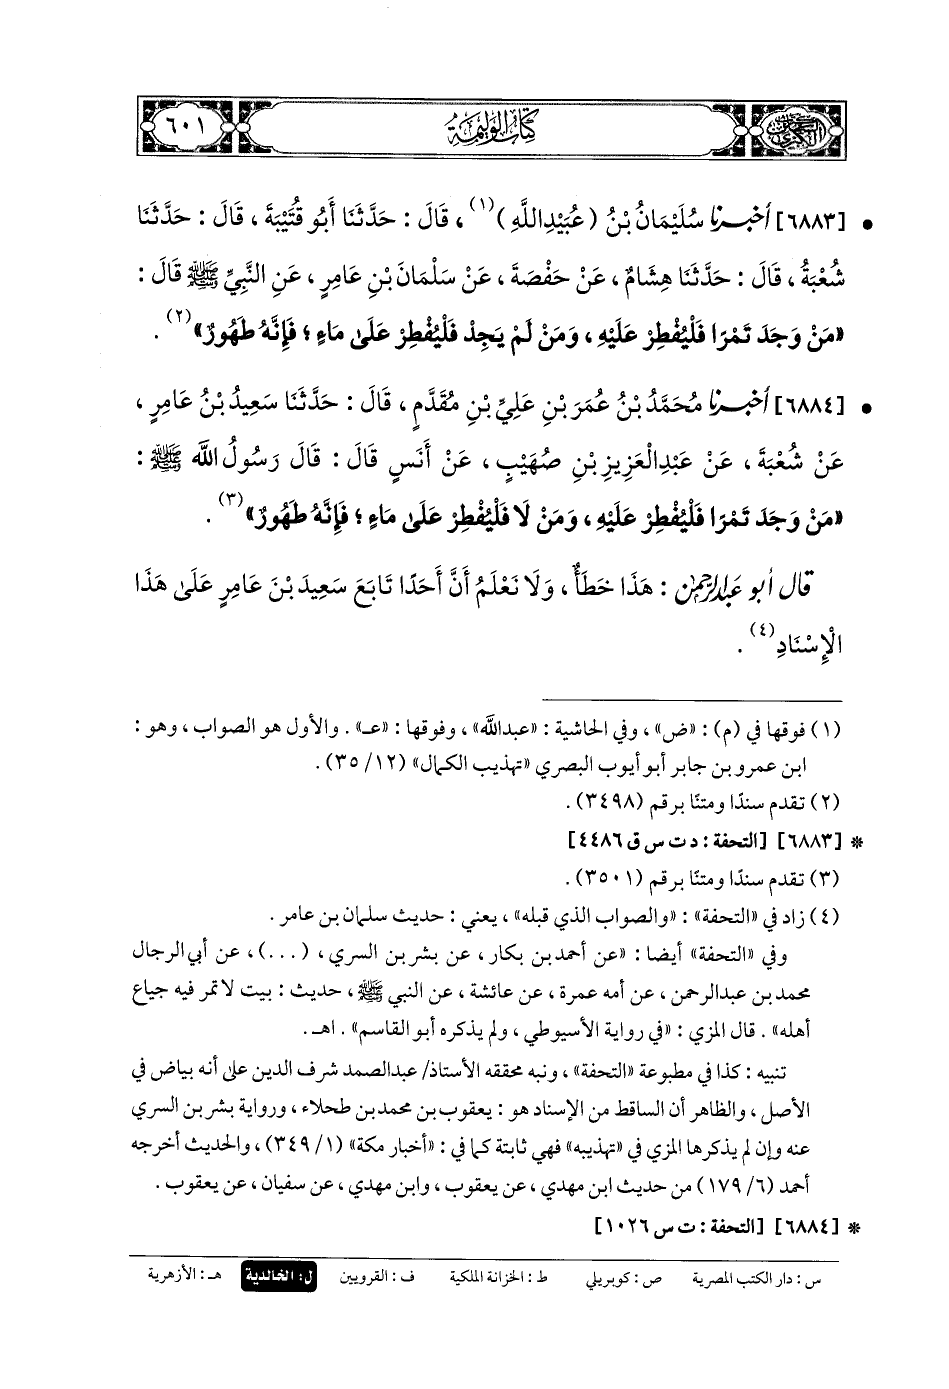 الكبرى
كتاب الوليمة
٦٠١
• [٦٨٨٣] أخبرنا سُلَيْمَانُ بْنُ (عُبَيْدِاللَّهِ)(١)، قَالَ: حَدَّثَنَا أَبُو قُتَيْبَةَ، قَالَ: حَدَّثَنَا
شُعْبَةُ، قَالَ: حَدَّثَنَا هِشَامٌ، عَنْ حَفْصَةَ، عَنْ سَلْمَانَ بْنِ عَامِرٍ، عَنِ النَّبِيِّ ﷺ قَالَ:
«مَنْ وَجَدَ تَمْرًا فَلْيُفْطِرْ عَلَيْهِ، وَمَنْ لَمْ يَجِدْ فَلْيُفْطِرْ عَلَىٰ مَاءٍ؛ فَإِنَّهُ طَهُورٌ»(٢).
• [٦٨٨٤] أخبرنا مُحَمَّدُ بْنُ عُمَرَ بْنِ عَلِيِّ بْنِ مُقَدَّمٍ، قَالَ: حَدَّثَنَا سَعِيدُ بْنُ عَامِرٍ،
عَنْ شُعْبَةَ، عَنْ عَبْدِالْعَزِيزِ بْنِ صُهَيْبٍ، عَنْ أَنَسٍ قَالَ: قَالَ رَسُولُ اللَّه ﷺ:
«مَنْ وَجَدَ تَمْرًا فَلْيُفْطِرْ عَلَيْهِ، وَمَنْ لَا فَلْيُفْطِرْ عَلَىٰ مَاءٍ؛ فَإِنَّهُ طَهُورٌ»(٣).
قال أبو عبدالرحمن: هَذَا خَطَأٌ، وَلَا نَعْلَمُ أَنَّ أَحَدًا تَابَعَ سَعِيدَ بْنَ عَامِرٍ عَلَىٰ هَذَا
الْإِسْنَادِ(٤).
(١) فوقها في (م): «ض»، وفي الحاشية: «عبداللَّه»، وفوقها: «عـ». والأول هو الصواب، وهو:
ابن عمرو بن جابر أبو أيوب البصري «تهذيب الكمال» (١٢/ ٣٥).
(٢) تقدم سندًا ومتنًا برقم (٣٤٩٨).
* [٦٨٨٣] [التحفة: د ت س ق ٤٤٨٦]
(٣) تقدم سندًا ومتنًا برقم (٣٥٠١).
(٤) زاد في «التحفة»: «والصواب الذي قبله»، يعني: حديث سلمان بن عامر.
وفي «التحفة» أيضا: «عن أحمد بن بكار، عن بشر بن السري، (...)، عن أبي الرجال
محمد بن عبدالرحمن، عن أمه عمرة، عن عائشة، عن النبي ﷺ، حديث: بيت لا تمر فيه جياع
أهله». قال المزي: «في رواية الأسيوطي، ولم يذكره أبو القاسم». اهـ.
تنبيه: كذا في مطبوعة «التحفة»، ونبه محققه الأستاذ/ عبدالصمد شرف الدين على أنه بياض في
الأصل، والظاهر أن الساقط من الإسناد هو: يعقوب بن محمد بن طحلاء، ورواية بشر بن السري
عنه وإن لم يذكرها المزي في «تهذيبه» فهي ثابتة كما في: «أخبار مكة» (١/ ٣٤٩)، والحديث أخرجه
أحمد (٦/ ١٧٩) من حديث ابن مهدي، عن يعقوب، وابن مهدي، عن سفيان، عن يعقوب.
* [٦٨٨٤] [التحفة: ت س ١٠٢٦]
س: دار الكتب المصرية ص: كوبريلي ط: الخزانة الملكية ف: القرويين ل: الخالدية هـ: الأزهرية